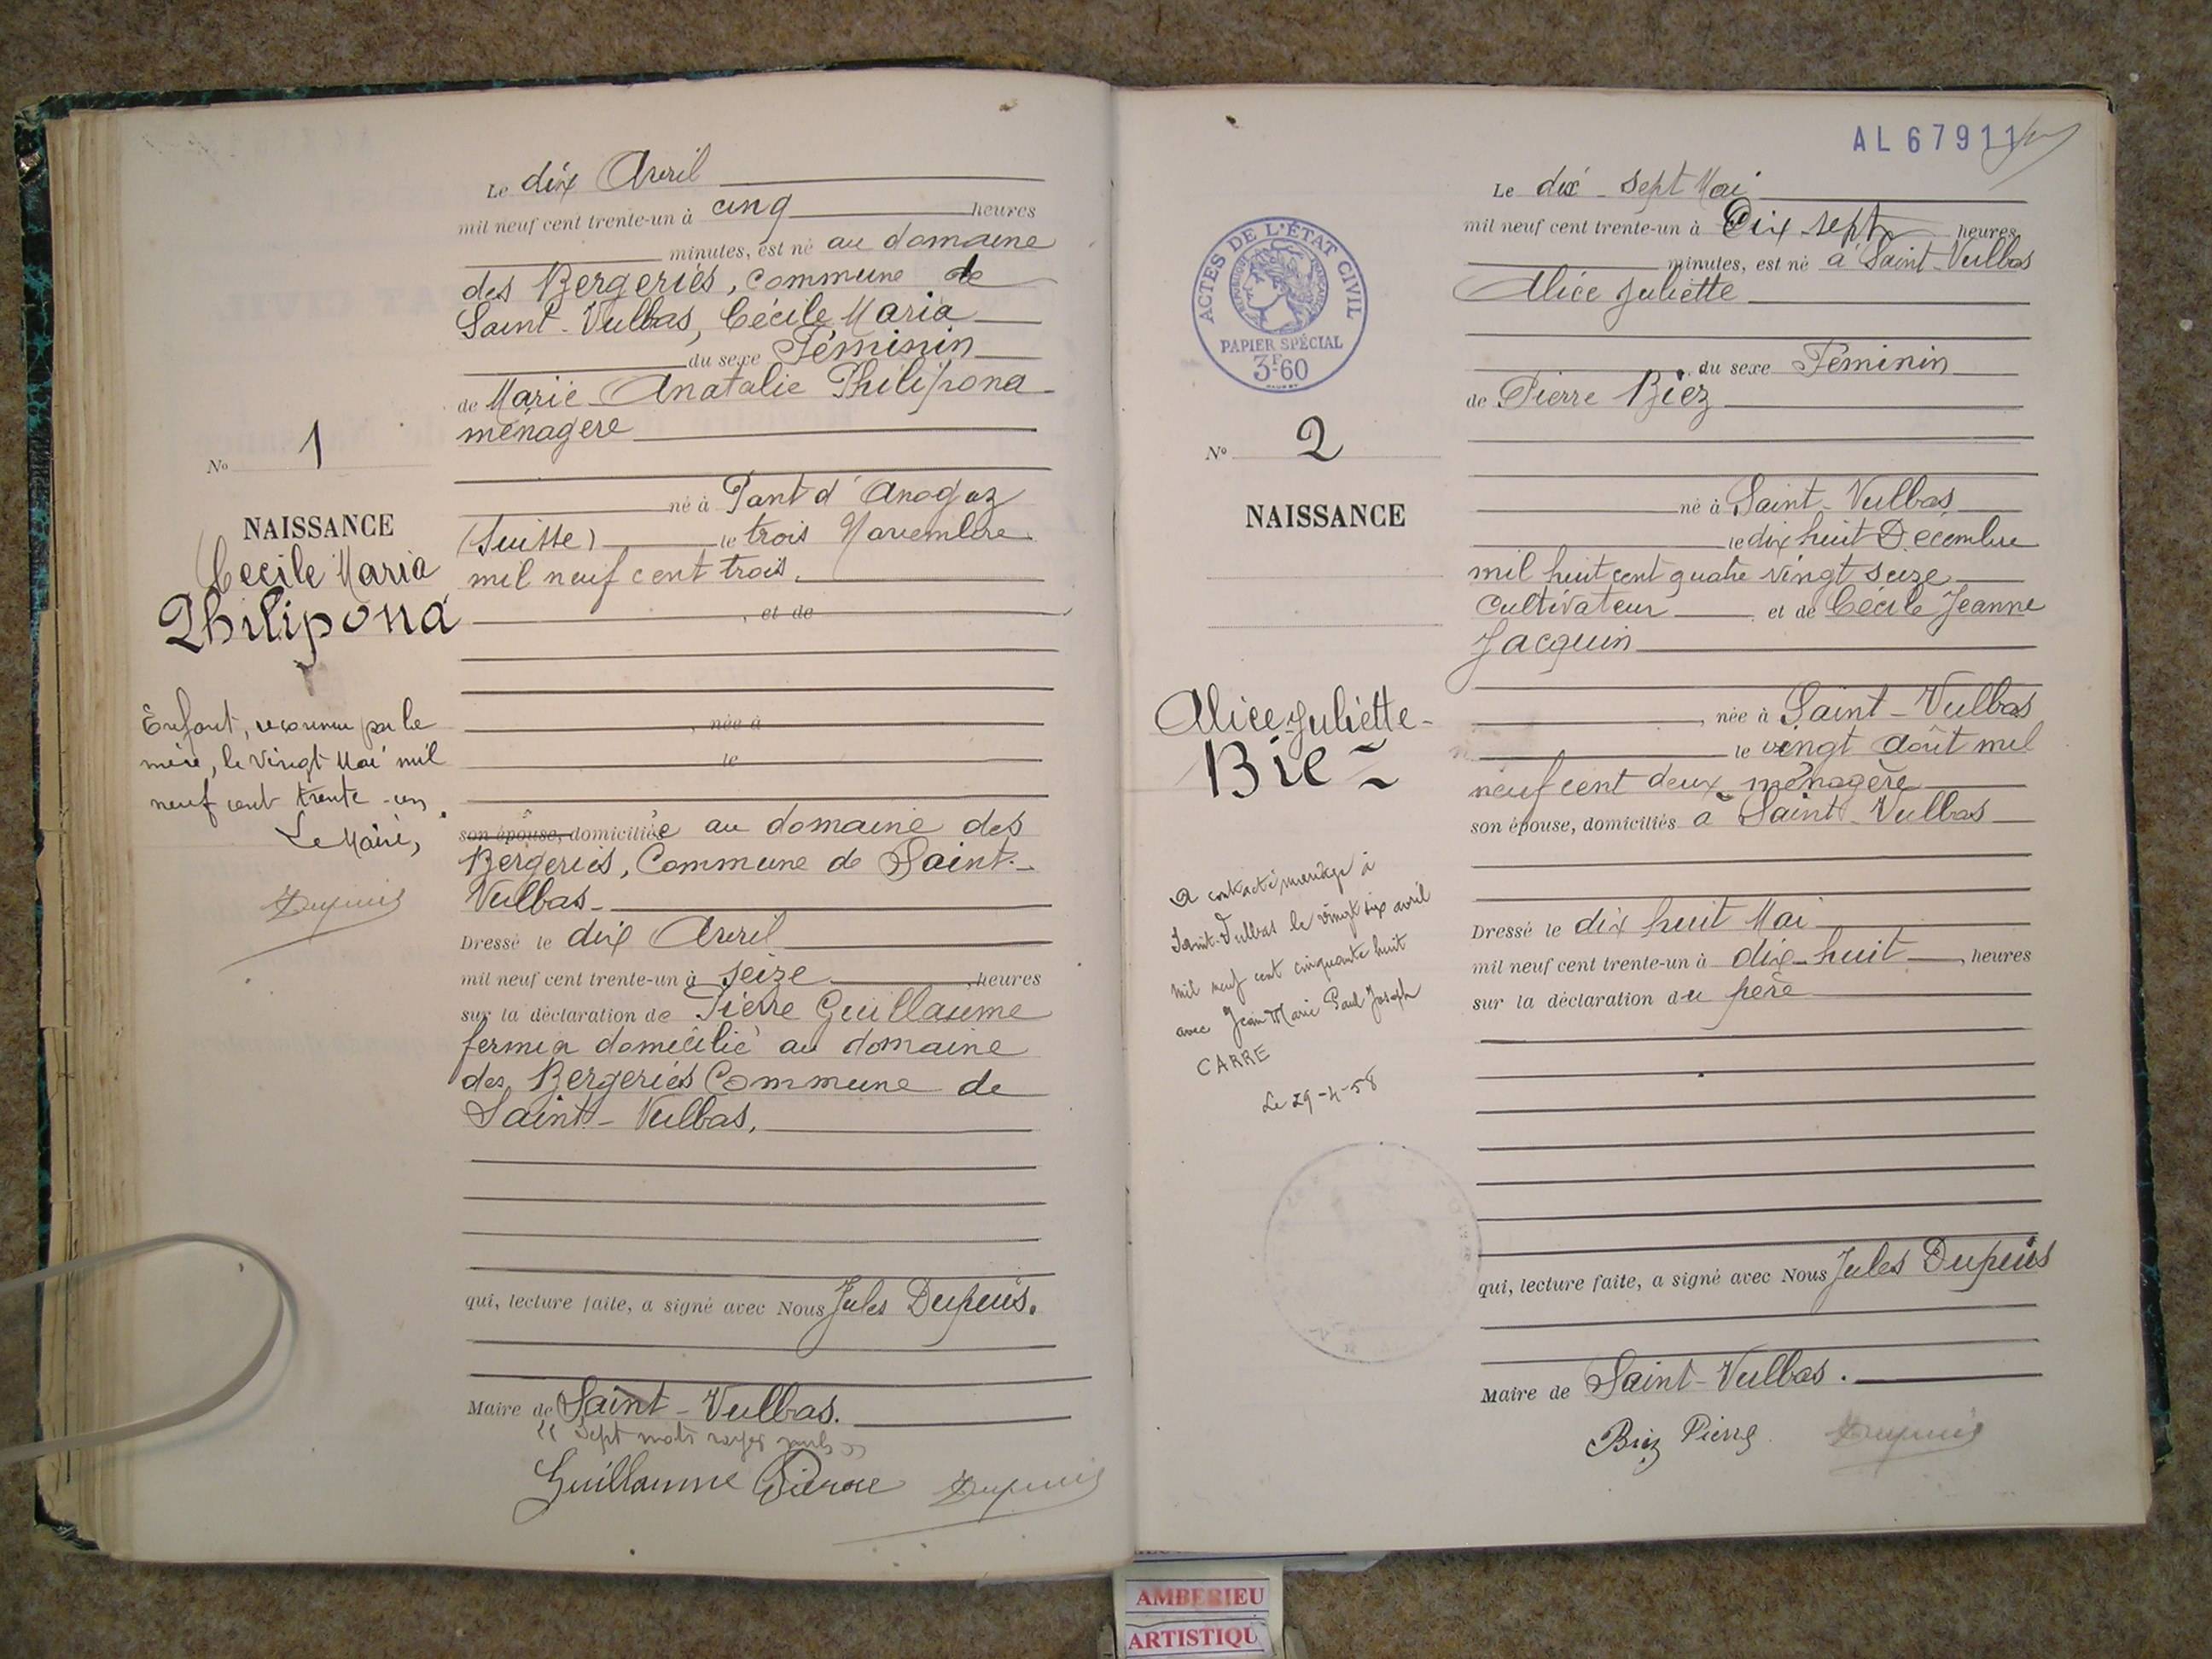 Le dix Avril
mil neuf cent trente-un à cinq heures
minutes, est né au domaine
des Bergeries, commune de
Saint-Vulbas, Cécile Maria
du sexe Féminin
de Marie Anatalie Philipona
ménagère
né à Pont d'Anogoz
(Suisse) le trois Novembre
mil neuf cent trois.
, et de
, née à
le
son épouse, domiciliée au domaine des
Bergeries, Commune de Saint-
Vulbas
Dressé le dix Avril
mil neuf cent trente-un à seize heures
sur la déclaration de Pierre Guillaume
fermier domicilié au domaine
des Bergeries Commune de
Saint-Vulbas,
qui, lecture faite, a signé avec Nous Jules Dupuis.
Maire de Saint-Vulbas.
"Sept mots rayés nuls"
Guillaume Pierre Dupuis
No 1
NAISSANCE
Cecile Maria
Philipona
Enfant, reconnu par le
mère, le vingt Mai mil
neuf cent trente-un,
Le Maire,
Dupuis
AL 67911
ACTES DE L'ÉTAT CIVIL
RÉPUBLIQUE FRANÇAISE
PAPIER SPÉCIAL
3F60
No 2
NAISSANCE
Alice Juliette
Biez
A contracté mariage à
Saint-Vulbas le vingt six avril
mil neuf cent cinquante huit
avec Jean Marie Paul Joseph
CARRE
Le 29-4-58
Le dix-sept Mai
mil neuf cent trente-un à Dix sept heures
minutes, est né à Saint-Vulbas
Alice Juliette
du sexe Féminin
de Pierre Biez
né à Saint-Vulbas
le dix huit Décembre
mil huit cent quatre vingt seize
cultivateur et de Cécile Jeanne
Jacquin
, née à Saint-Vulbas
le vingt août mil
neuf cent deux, ménagère
son épouse, domiciliés à Saint-Vulbas
Dressé le dix huit Mai
mil neuf cent trente-un à dix-huit heures
sur la déclaration du père
qui, lecture faite, a signé avec Nous Jules Dupuis
Maire de Saint-Vulbas.
Biez Pierre Dupuis
AMBERIEU
ARTISTIQU